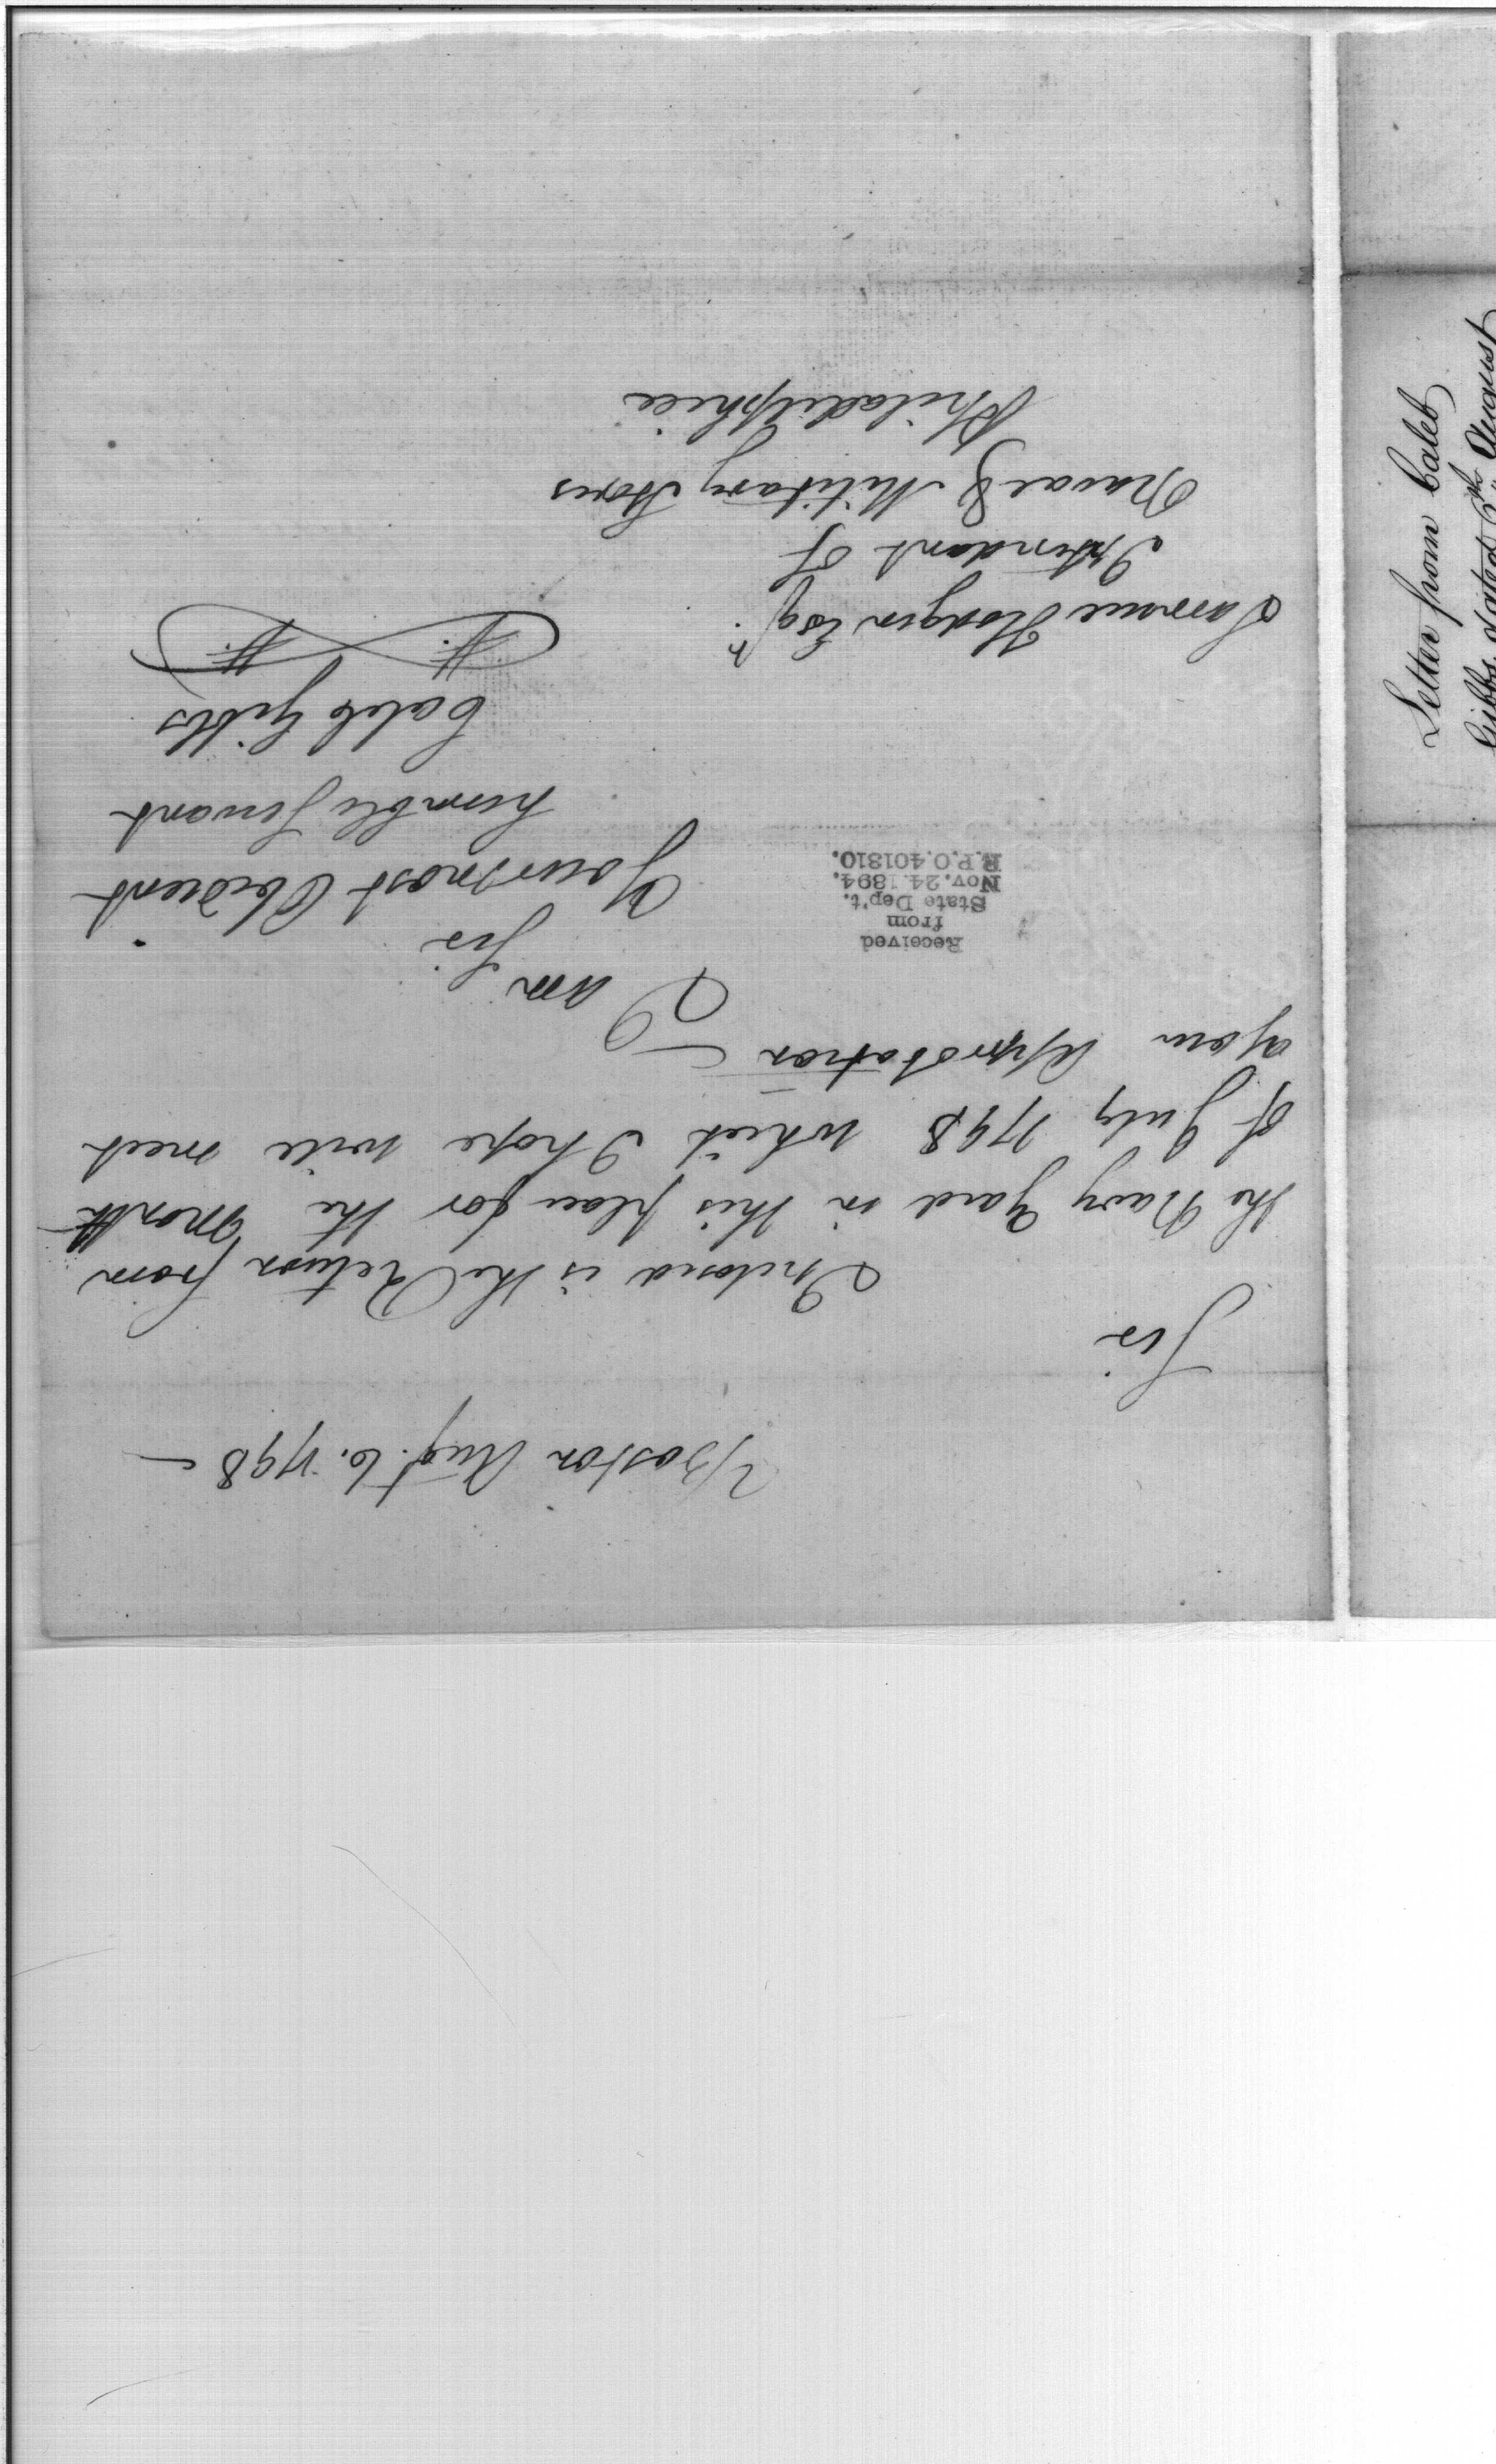 Boston Augt. 6. 1798 —
Sir
Inclosed is the Return from
the Navy Yard in this place for the Month
of July 1798 which I hope will meet
your Approbation —
I am
Sir
Your most Obedient
humble Servant
Caleb Gibbs
Received
from
State Dep't.
Nov. 24. 1894.
R.P.O. 401810.
Samuel Hodgdon Esqr.
Intendant of
Naval & Military Stores
Philadelphia
Letter from Caleb
Gibbs, dated 6th August